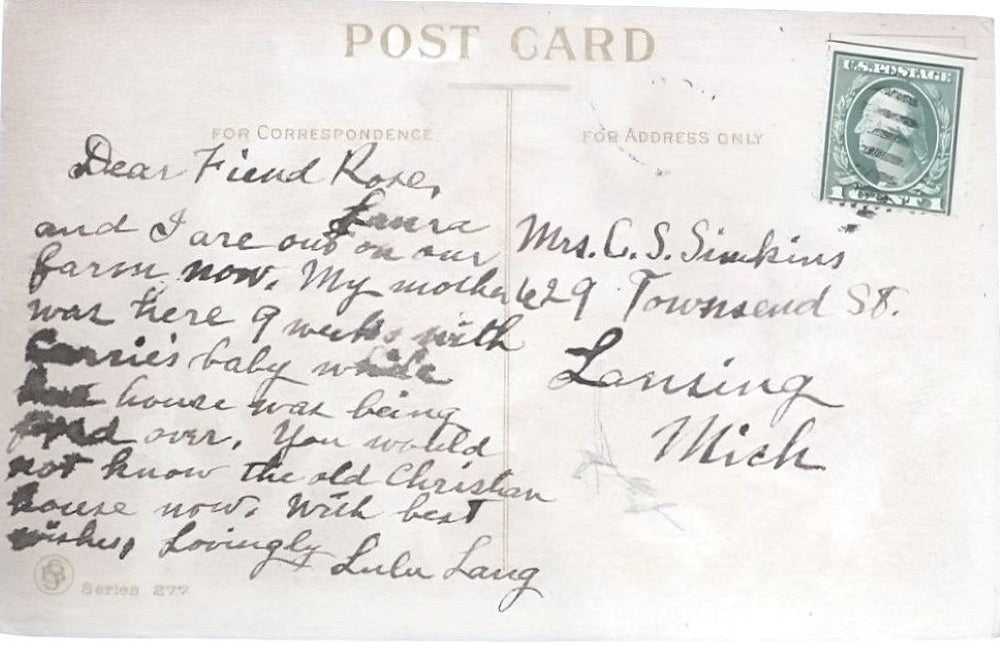 POST CARD
FOR CORRESPONDENCE
FOR ADDRESS ONLY
U.S. POSTAGE
1 CENT 1
Dear Fiend Rose,
Laura
and I are out on our
farm now. My mother
was here 9 weeks with
Carrie's baby while
house was being
over. You would
not know the old Christian
house now. With best
wishes, Lovingly Lulu Lang
Mrs. C. S. Simkins
629 Townsend St.
Lansing
Mich
Series 277